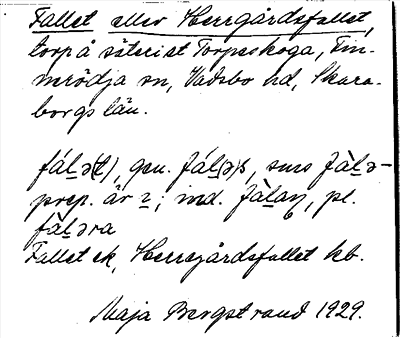 Fallet eller Herrgårdsfallet,
torp å säteriet Torpaskoga, Fin-
nerödja sn, Vadsbo hd, Skara-
borgs län.
fál̲ə(t), gen. fál(ə)s, sms fàl̲ə-
prep. är ; ind. fàl̲aɳ, pl.
fàl̲əra
Fallet ek, Herrgårdsfallet kb.
Maja Bergstrand 1929.